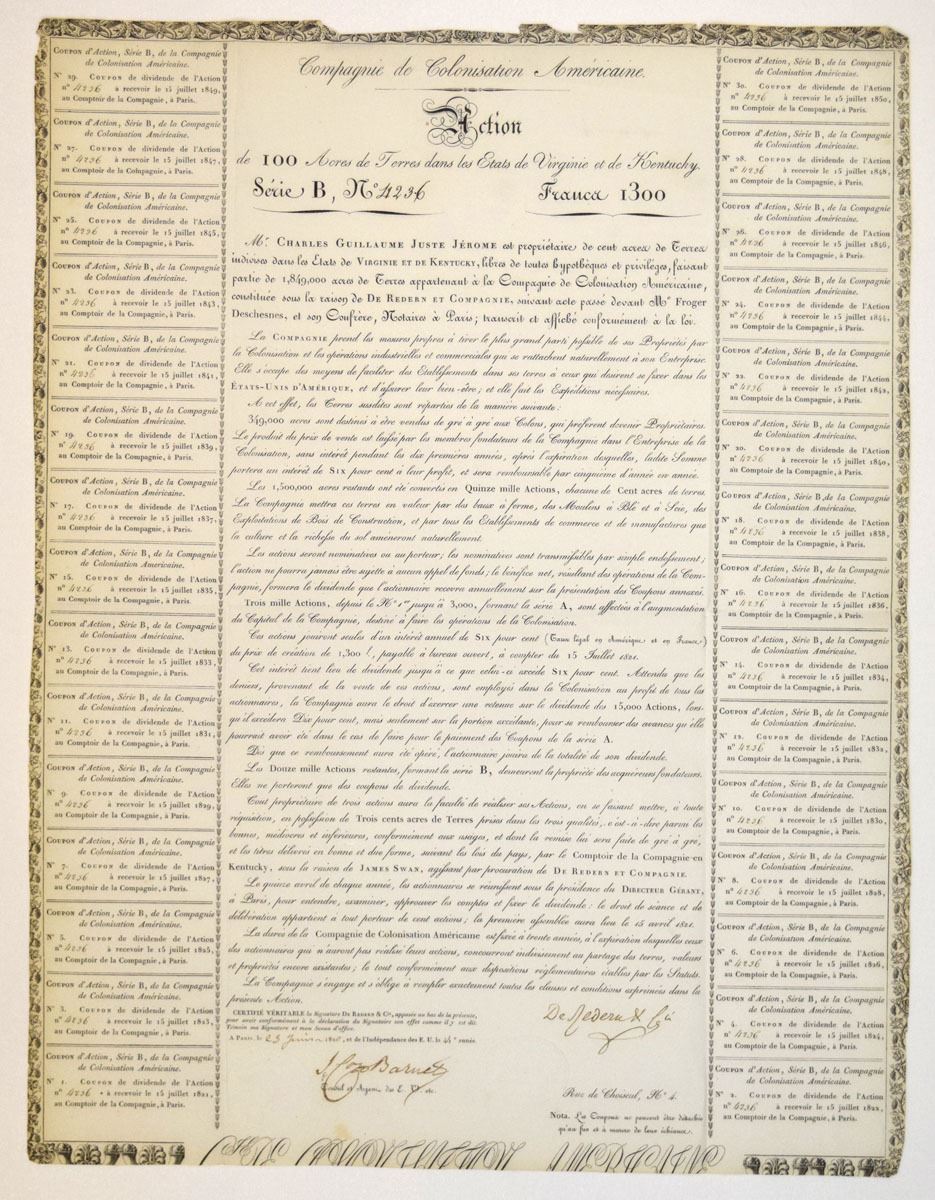 Compagnie de Colonisation Américaine.
Action
de 100 Acres de Terres dans les Etats de Virginie et de Kentuchy.
Série B, N° 4236 Francs 1300
Mr. CHARLES GUILLAUME JUSTE JÉRÔME est propriétaire de cent acres de Terres
indivises dans les Etats de VIRGINIE ET DE KENTUCKY, libres de toutes hypothèques et privilèges, faisant
partie de 1,849,000 acres de Terres appartenant à la Compagnie de Colonisation Américaine,
constituée sous la raison de DE REDERN ET COMPAGNIE, suivant acte passé devant Me Froger
Deschesnes, et son Confrère, Notaires à Paris; transcrit et affiché conformément à la loi.
La COMPAGNIE prend les mesures propres à tirer le plus grand parti possible de ses Propriétés par
la Colonisation et les opérations industrielles et commerciales qui se rattachent naturellement à son Entreprise.
Elle s'occupe des moyens de faciliter des Etablissements dans ses terres à ceux qui désirent se fixer dans les
ÉTATS-UNIS D'AMÉRIQUE, et d'assurer leur bien-être; et elle fait les Expéditions nécessaires.
A cet effet, les Terres susdites sont réparties de la manière suivante:
349,000 acres sont destinés à être vendus de gré à gré aux Colons, qui préfèrent devenir Propriétaires.
Le produit du prix de vente est laissé par les membres fondateurs de la Compagnie dans l'Entreprise de la
Colonisation, sans intérêt pendant les dix premières années, après l'expiration desquelles, ladite Somme
portera un intérêt de SIX pour cent à leur profit, et sera remboursable par cinquième d'année en année.
Les 1,500,000 acres restants ont été convertis en Quinze mille Actions, chacune de Cent acres de terres.
La Compagnie mettra ces terres en valeur par des baux à ferme, des Moulins à Blé et à Scie, des
Exploitations de Bois de Construction, et par tous les Etablissements de commerce et de manufactures que
la culture et la richesse du sol amèneront naturellement.
Les actions seront nominatives ou au porteur; les nominatives sont transmissibles par simple endossement;
l'action ne pourra jamais être sujette à aucun appel de fonds; le bénéfice net, résultant des opérations de la Com-
pagnie, formera le dividende que l'actionnaire recevra annuellement sur la présentation des Coupons annexés.
Trois mille Actions, depuis le N° 1er jusqu'à 3,000, formant la série A, sont affectées à l'augmentation
du Capital de la Compagnie, destiné à faire les opérations de la Colonisation.
Ces actions jouiront seules d'un intérêt annuel de SIX pour cent (Taux légal en Amérique et en France)
du prix de création de 1,300 f., payable à bureau ouvert, à compter du 15 Juillet 1821.
Cet intérêt tient lieu de dividende jusqu'à ce que celui-ci excède SIX pour cent. Attendu que les
deniers, provenant de la vente de ces actions, sont employés dans la Colonisation au profit de tous les
actionnaires, la Compagnie aura le droit d'exercer une retenue sur le dividende des 15,000 Actions, lors-
qu'il excèdera Dix pour cent, mais seulement sur la portion excédante, pour se rembourser des avances qu'elle
pourrait avoir été dans le cas de faire pour le paiement des Coupons de la série A.
Dès que ce remboursement aura été opéré, l'actionnaire jouira de la totalité de son dividende.
Les Douze mille Actions restantes, formant la série B, demeurent la propriété des acquéreurs fondateurs.
Elles ne porteront que des coupons de dividende.
Tout propriétaire de trois actions aura la faculté de réaliser ses Actions, en se faisant mettre, à toute
réquisition, en possession de Trois cents acres de Terres prises dans les trois qualités, c'est-à-dire parmi les
bonnes, médiocres et inférieures, conformément aux usages, et dont la remise lui sera faite de gré à gré,
et les titres délivrés en bonne et due forme, suivant les lois du pays, par le Comptoir de la Compagnie en
Kentucky, sous la raison de JAMES SWAN, agissant par procuration de DE REDERN ET COMPAGNIE.
Le quinze avril de chaque année, les actionnaires se réunissent sous la présidence du DIRECTEUR GÉRANT,
à Paris, pour entendre, examiner, approuver les comptes et fixer le dividende: le droit de séance et de
délibération appartient à tout porteur de cent actions; la première assemblée aura lieu le 15 avril 1821.
La durée de la Compagnie de Colonisation Américaine est fixée à trente années, à l'expiration desquelles ceux
des actionnaires qui n'auront pas réalisé leurs actions, concourront indivisément au partage des terres, valeurs
et propriétés encore existantes; le tout conformément aux dispositions réglementaires établies par les Statuts.
La Compagnie s'engage et s'oblige à remplir exactement toutes les clauses et conditions exprimées dans la
présente Action.
CERTIFIÉ VÉRITABLE la Signature DE REDERN & Co, apposée au bas de la présente,
pour avoir conformément à la déclaration du Signataire son effet comme il y est dit.
Témoin ma Signature et mon Sceau d'office.
A PARIS, le 23 Juin 1820, et de l'Indépendance des E. U. le 45e année.
De Redern & Cie
Barnet
Consul et Agent des E. U. etc.
Rue de Choiseul, N° 4.
Nota. Les Coupons ne peuvent être détachés
qu'au fur et à mesure de leur échéance.
COUPON d'Action, Série B, de la Compagnie
de Colonisation Américaine.
N° 29. COUPON de dividende de l'Action
n° 4236 à recevoir le 15 juillet 1849,
au Comptoir de la Compagnie, à Paris.
COUPON d'Action, Série B, de la Compagnie
de Colonisation Américaine.
N° 27. COUPON de dividende de l'Action
n° 4236 à recevoir le 15 juillet 1847,
au Comptoir de la Compagnie, à Paris.
COUPON d'Action, Série B, de la Compagnie
de Colonisation Américaine.
N° 25. COUPON de dividende de l'Action
n° 4236 à recevoir le 15 juillet 1845,
au Comptoir de la Compagnie, à Paris.
COUPON d'Action, Série B, de la Compagnie
de Colonisation Américaine.
N° 23. COUPON de dividende de l'Action
n° 4236 à recevoir le 15 juillet 1843,
au Comptoir de la Compagnie, à Paris.
COUPON d'Action, Série B, de la Compagnie
de Colonisation Américaine.
N° 21. COUPON de dividende de l'Action
n° 4236 à recevoir le 15 juillet 1841,
au Comptoir de la Compagnie, à Paris.
COUPON d'Action, Série B, de la Compagnie
de Colonisation Américaine.
N° 19. COUPON de dividende de l'Action
n° 4236 à recevoir le 15 juillet 1839,
au Comptoir de la Compagnie, à Paris.
COUPON d'Action, Série B, de la Compagnie
de Colonisation Américaine.
N° 17. COUPON de dividende de l'Action
n° 4236 à recevoir le 15 juillet 1837,
au Comptoir de la Compagnie, à Paris.
COUPON d'Action, Série B, de la Compagnie
de Colonisation Américaine.
N° 15. COUPON de dividende de l'Action
n° 4236 à recevoir le 15 juillet 1835,
au Comptoir de la Compagnie, à Paris.
COUPON d'Action, Série B, de la Compagnie
de Colonisation Américaine.
N° 13. COUPON de dividende de l'Action
n° 4236 à recevoir le 15 juillet 1833,
au Comptoir de la Compagnie, à Paris.
COUPON d'Action, Série B, de la Compagnie
de Colonisation Américaine.
N° 11. COUPON de dividende de l'Action
n° 4236 à recevoir le 15 juillet 1831,
au Comptoir de la Compagnie, à Paris.
COUPON d'Action, Série B, de la Compagnie
de Colonisation Américaine.
N° 9. COUPON de dividende de l'Action
n° 4236 à recevoir le 15 juillet 1829,
au Comptoir de la Compagnie, à Paris.
COUPON d'Action, Série B, de la Compagnie
de Colonisation Américaine.
N° 7. COUPON de dividende de l'Action
n° 4236 à recevoir le 15 juillet 1827,
au Comptoir de la Compagnie, à Paris.
COUPON d'Action, Série B, de la Compagnie
de Colonisation Américaine.
N° 5. COUPON de dividende de l'Action
n° 4236 à recevoir le 15 juillet 1825,
au Comptoir de la Compagnie, à Paris.
COUPON d'Action, Série B, de la Compagnie
de Colonisation Américaine.
N° 3. COUPON de dividende de l'Action
n° 4236 à recevoir le 15 juillet 1823,
au Comptoir de la Compagnie, à Paris.
COUPON d'Action, Série B, de la Compagnie
de Colonisation Américaine.
N° 1. COUPON de dividende de l'Action
n° 4236 à recevoir le 15 juillet 1821,
au Comptoir de la Compagnie, à Paris.
COUPON d'Action, Série B, de la Compagnie
de Colonisation Américaine.
N° 30. COUPON de dividende de l'Action
n° 4236 à recevoir le 15 juillet 1850,
au Comptoir de la Compagnie, à Paris.
COUPON d'Action, Série B, de la Compagnie
de Colonisation Américaine.
N° 28. COUPON de dividende de l'Action
n° 4236 à recevoir le 15 juillet 1848,
au Comptoir de la Compagnie, à Paris.
COUPON d'Action, Série B, de la Compagnie
de Colonisation Américaine.
N° 26. COUPON de dividende de l'Action
n° 4236 à recevoir le 15 juillet 1846,
au Comptoir de la Compagnie, à Paris.
COUPON d'Action, Série B, de la Compagnie
de Colonisation Américaine.
N° 24. COUPON de dividende de l'Action
n° 4236 à recevoir le 15 juillet 1844,
au Comptoir de la Compagnie, à Paris.
COUPON d'Action, Série B, de la Compagnie
de Colonisation Américaine.
N° 22. COUPON de dividende de l'Action
n° 4236 à recevoir le 15 juillet 1842,
au Comptoir de la Compagnie, à Paris.
COUPON d'Action, Série B, de la Compagnie
de Colonisation Américaine.
N° 20. COUPON de dividende de l'Action
n° 4236 à recevoir le 15 juillet 1840,
au Comptoir de la Compagnie, à Paris.
COUPON d'Action, Série B, de la Compagnie
de Colonisation Américaine.
N° 18. COUPON de dividende de l'Action
n° 4236 à recevoir le 15 juillet 1838,
au Comptoir de la Compagnie, à Paris.
COUPON d'Action, Série B, de la Compagnie
de Colonisation Américaine.
N° 16. COUPON de dividende de l'Action
n° 4236 à recevoir le 15 juillet 1836,
au Comptoir de la Compagnie, à Paris.
COUPON d'Action, Série B, de la Compagnie
de Colonisation Américaine.
N° 14. COUPON de dividende de l'Action
n° 4236 à recevoir le 15 juillet 1834,
au Comptoir de la Compagnie, à Paris.
COUPON d'Action, Série B, de la Compagnie
de Colonisation Américaine.
N° 12. COUPON de dividende de l'Action
n° 4236 à recevoir le 15 juillet 1832,
au Comptoir de la Compagnie, à Paris.
COUPON d'Action, Série B, de la Compagnie
de Colonisation Américaine.
N° 10. COUPON de dividende de l'Action
n° 4236 à recevoir le 15 juillet 1830,
au Comptoir de la Compagnie, à Paris.
COUPON d'Action, Série B, de la Compagnie
de Colonisation Américaine.
N° 8. COUPON de dividende de l'Action
n° 4236 à recevoir le 15 juillet 1828,
au Comptoir de la Compagnie, à Paris.
COUPON d'Action, Série B, de la Compagnie
de Colonisation Américaine.
N° 6. COUPON de dividende de l'Action
n° 4236 à recevoir le 15 juillet 1826,
au Comptoir de la Compagnie, à Paris.
COUPON d'Action, Série B, de la Compagnie
de Colonisation Américaine.
N° 4. COUPON de dividende de l'Action
n° 4236 à recevoir le 15 juillet 1824,
au Comptoir de la Compagnie, à Paris.
COUPON d'Action, Série B, de la Compagnie
de Colonisation Américaine.
N° 2. COUPON de dividende de l'Action
n° 4236 à recevoir le 15 juillet 1822,
au Comptoir de la Compagnie, à Paris.